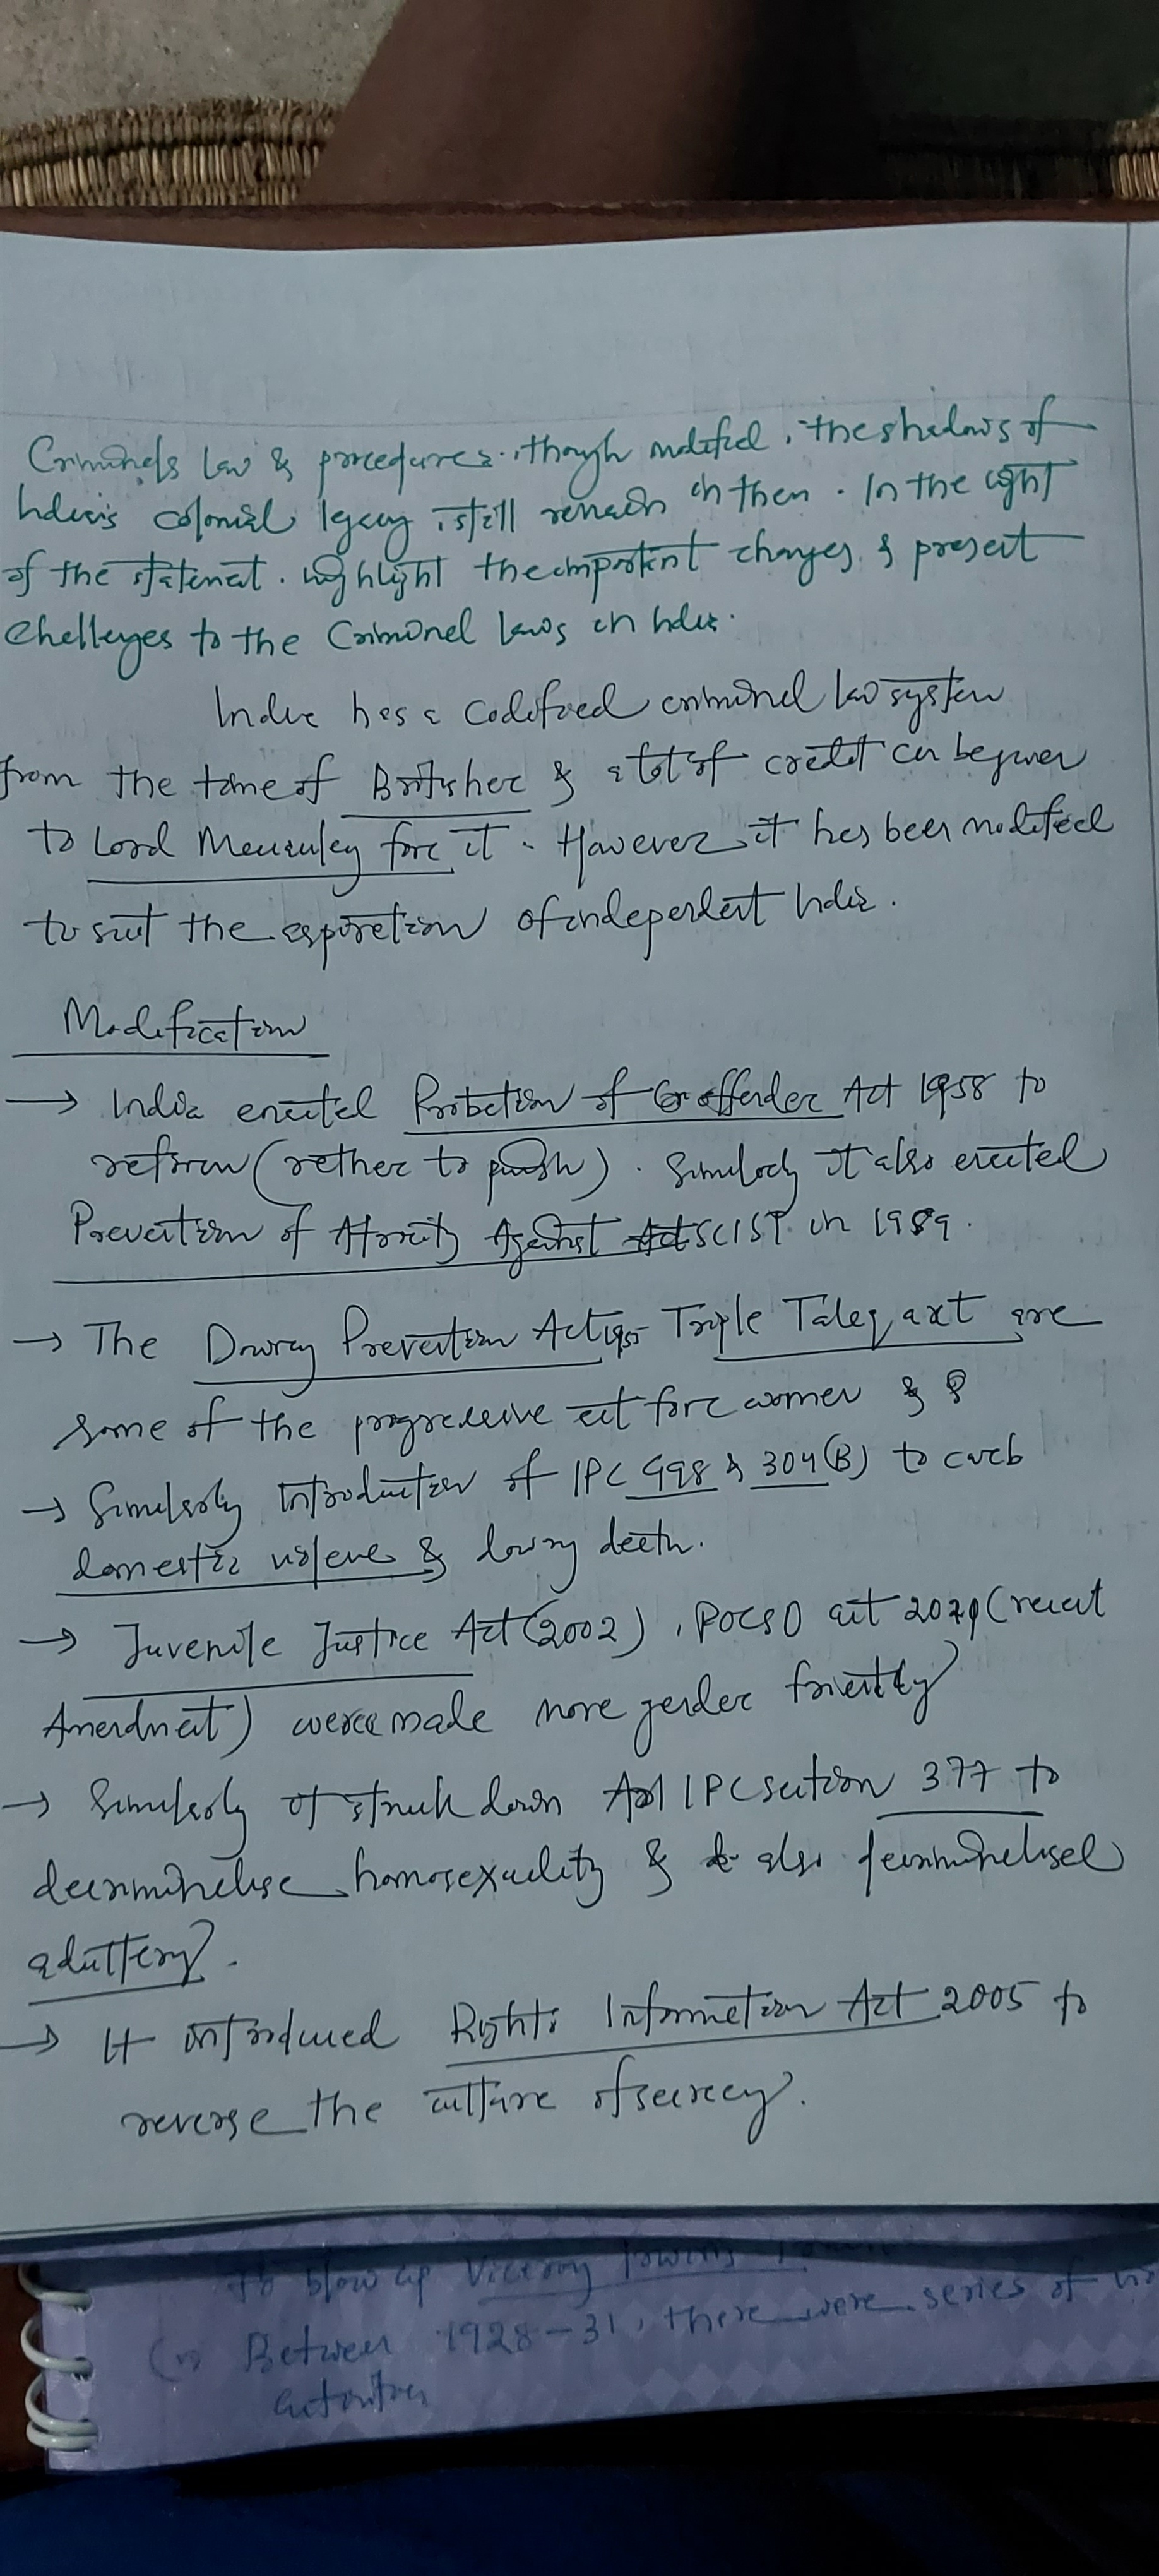 Criminals law & procedures. though modified, the shadows of
India's colonial legacy still remain in them. In the light
of the statement. highlight the important changes & present
challenges to the Criminal laws in India.
India has a codified criminal law system
from the time of Britisher & a lot of credit can be given
to Lord Macaulay for it. However it has been modified
to suit the aspiration of independent India.
Modification
→ India enacted Probation of offender Act 1958 to
reform (rather to punish). Similarly it also enacted
Prevention of Atrocity Against SC/ST in 1989.
→ The Dowry Prevention Act Triple Talaq act are
some of the progressive act for women &
→ Similarly introduction of IPC 498 & 304(B) to curb
domestic violence & dowry death.
→ Juvenile Justice Act (2002), POCSO act (recent
Amendment) were made more gender friendly
→ Similarly it struck down IPC section 377 to
decriminalise homosexuality & also decriminalised
adultery.
→ It introduced Rights Information Act 2005 to
reverse the culture of secrecy.
to blow up Viceroy
Between 1928-31, there were series of